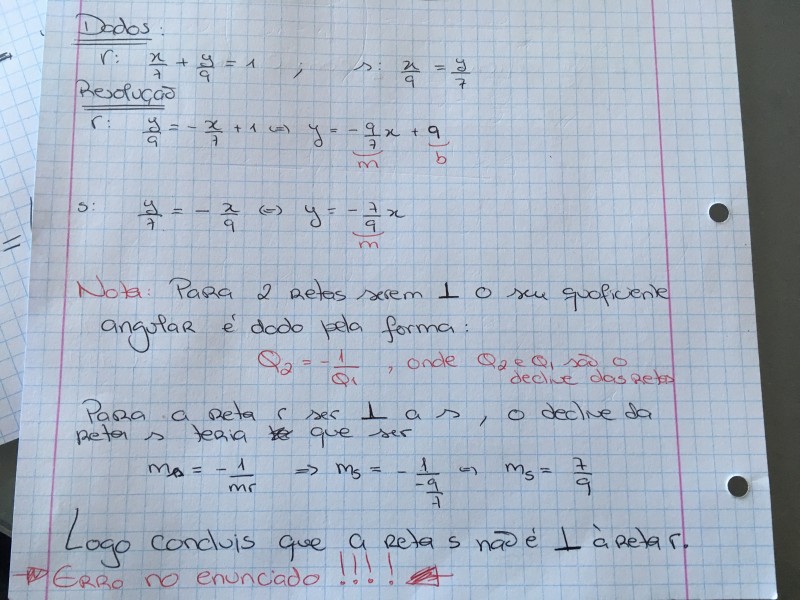 Dados:
r: x/7 + y/9 = 1 ; s: x/9 = y/7
Resolução
r: y/9 = - x/7 + 1 <=> y = - 9/7 x + 9
m b
s: y/7 = - x/9 <=> y = - 7/9 x
m
Nota: Para 2 retas serem ⊥ o seu quoficiente
angular é dado pela forma:
Q2 = - 1/Q1 , onde Q2 e Q1 são o
declive das retas
Para a reta r ser ⊥ a s, o declive da
reta s teria que ser
ms = - 1/mr => ms = - 1/(-9/7) <=> ms = 7/9
Logo concluis que a reta s não é ⊥ à reta r.
Erro no enunciado !!!!